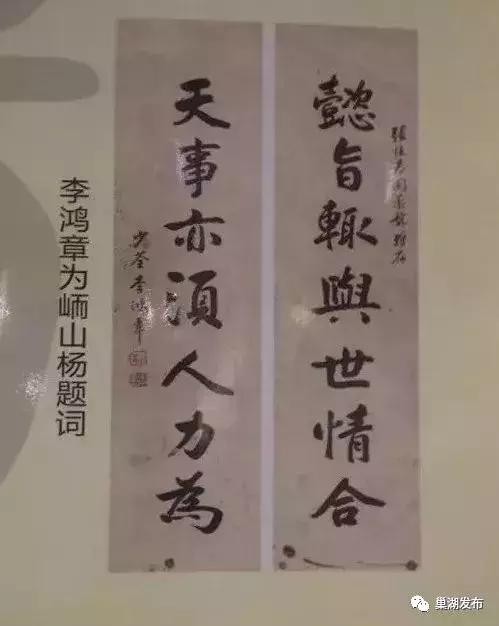 懿旨輙與世情合
天事亦須人力為
少荃李鴻章
李鸿章为崡山杨题词
巢湖发布